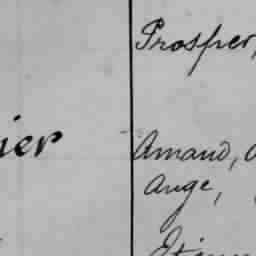 Prosper,
ier
Amand,
Ange,